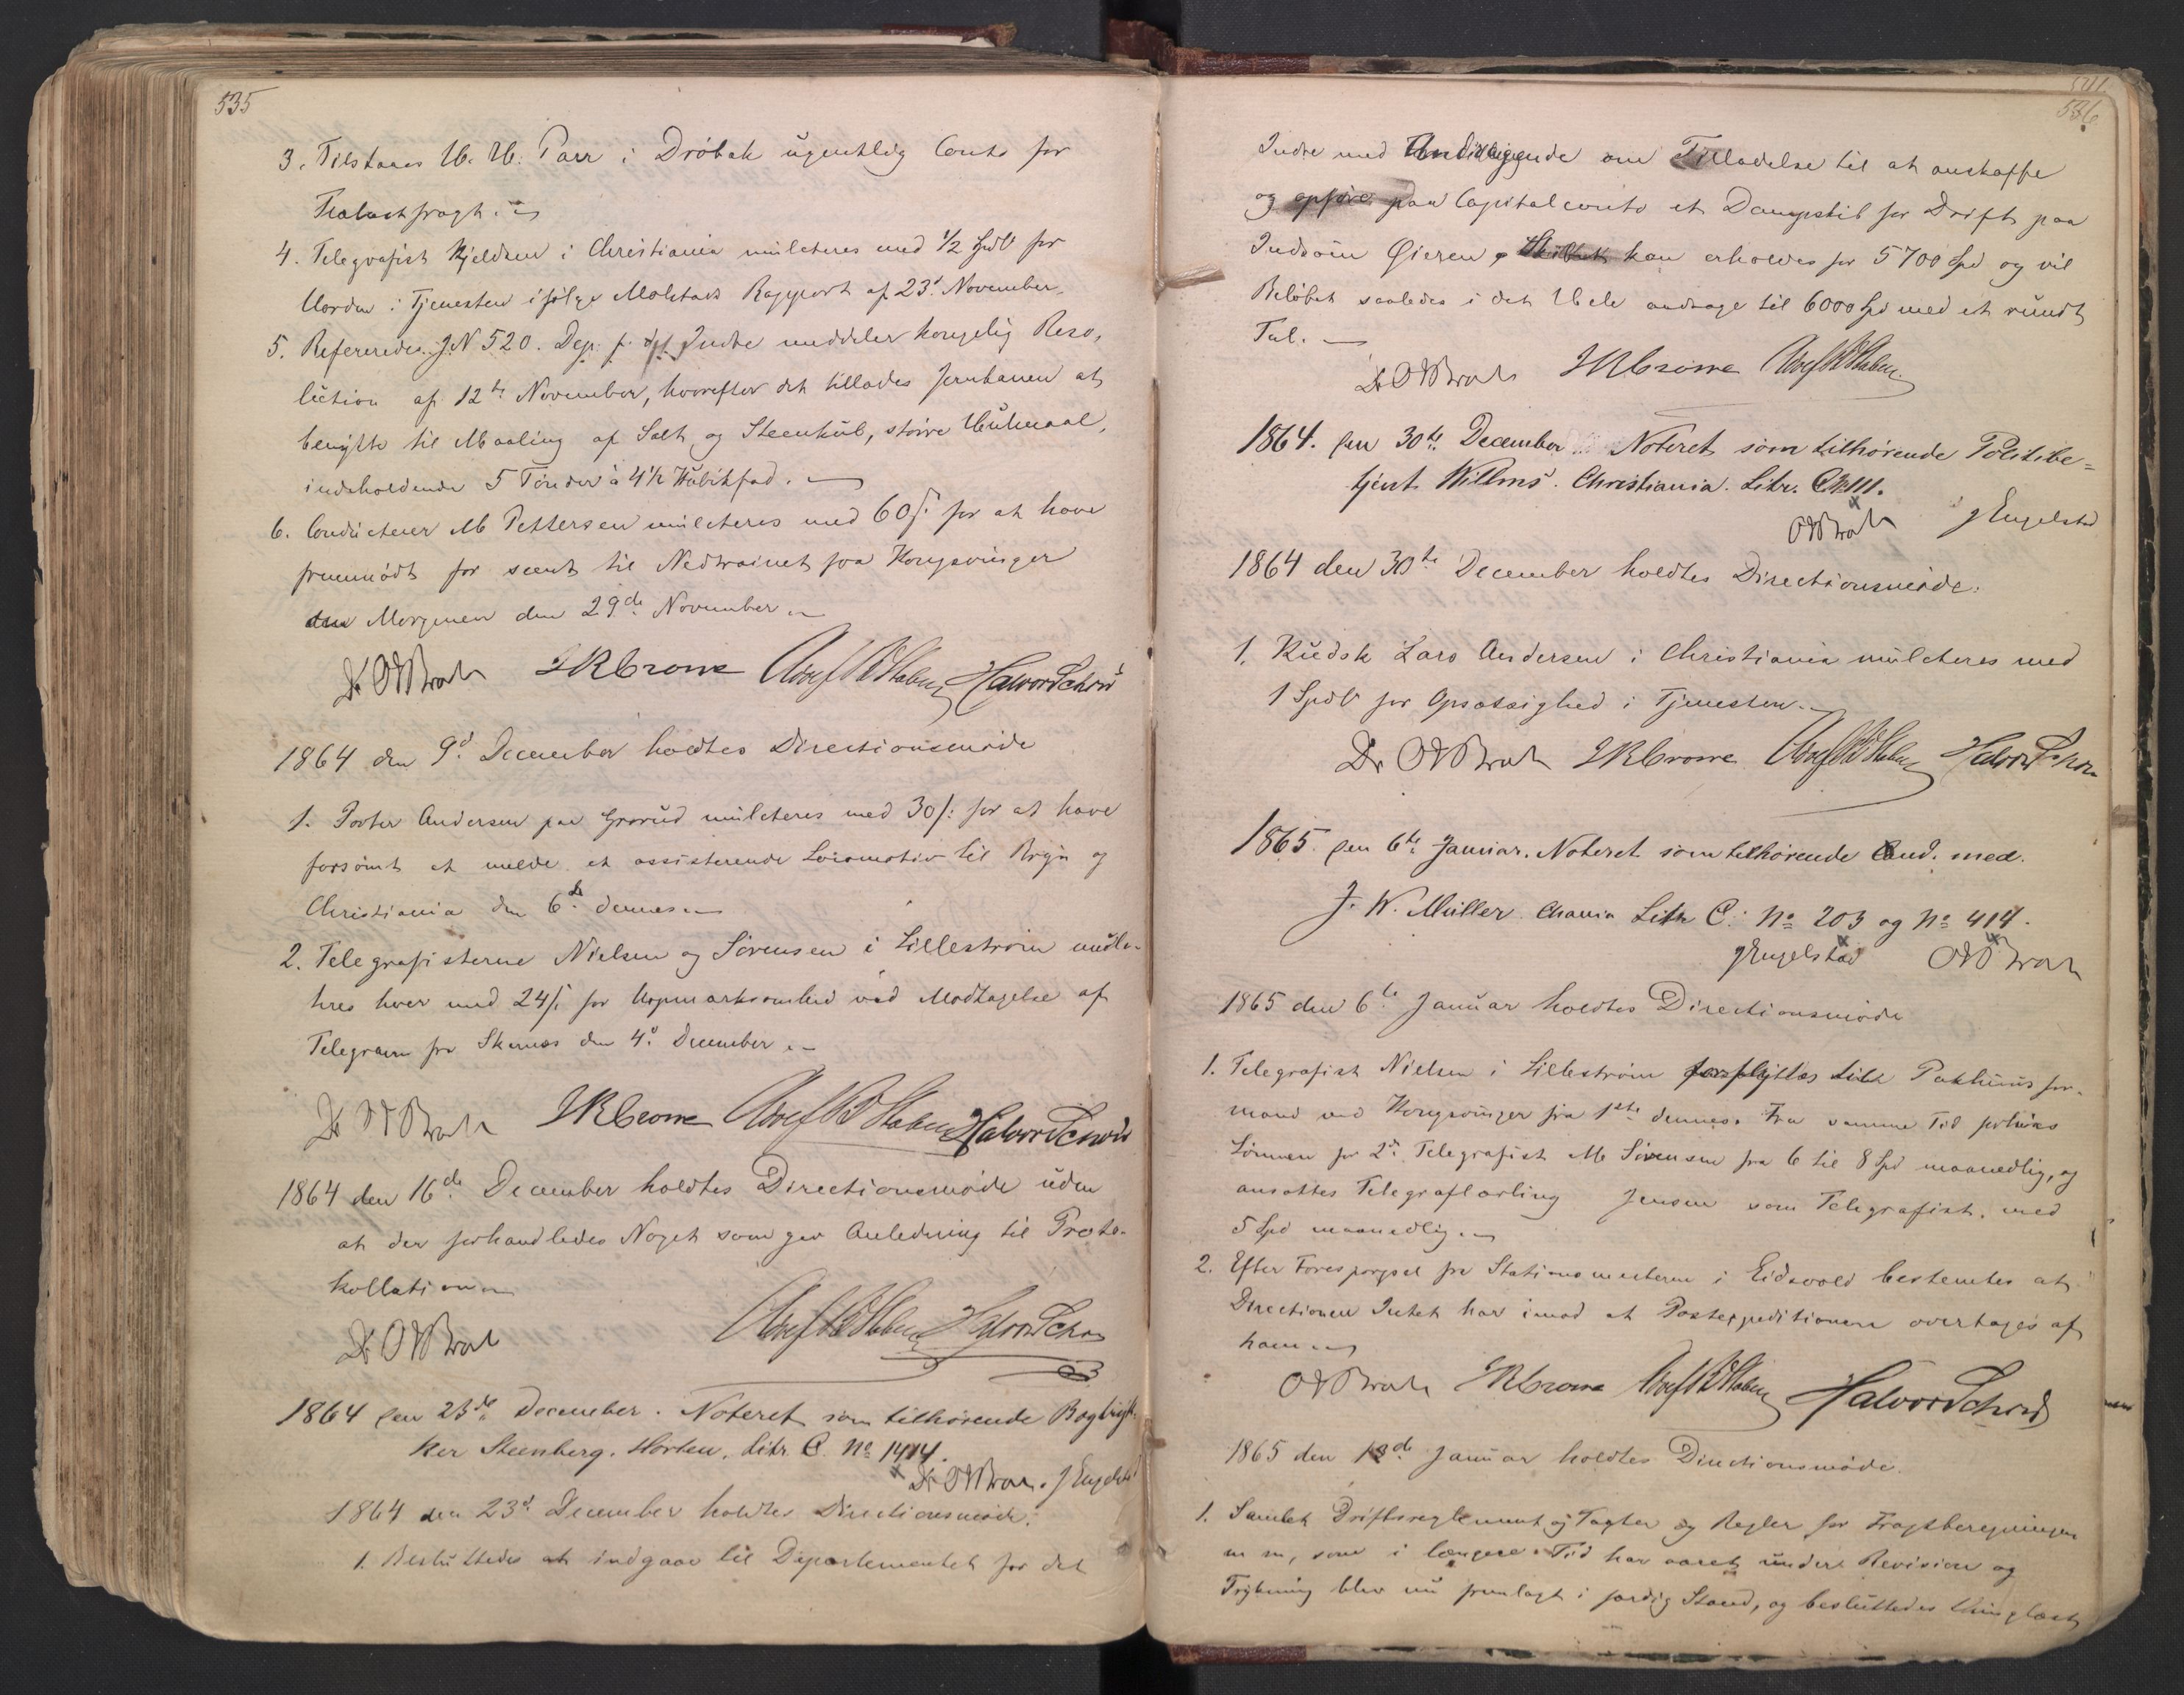 535
3. Tilstaaes H. H. Parr i Drøbak ugentlig Conto for
Trælastfragt.
4. Telegrafist Kjeldsen i Christiania mulcteres med 1/2 Spdl for
Uorden i Tjenesten ifølge Molstads Rapport af 23d November.
5. Refereredes J.N 520. Dep. f. det Indre meddeler kongelig Reso-
lution af 12te November, hvorefter det tillades Jernbanen at
benytte til Maaling af Salt og Steenkul, større Huulmaal,
indeholdende 5 Tønder à 4 1/2 Kubikfod.
6. Conducteur M Pettersen mulcteres med 60 s. for at have
fremmødt for seent til Nedtrainet fra Kongsvinger
den Morgenen den 29de November
Dr. O J Broch J R Crowe Halvor Schou
1864 den 9d December holdtes Directionsmøde
1. Porter Andersen paa Grorud mulcteres med 30 s: for at have
forsømt at melde et assisterende Locomotiv til Bryn og
Christiania den 6te dennes.
2. Telegrafisterne Nielsen og Sørensen i Lillestrøm mulc-
teres hver med 24 s. for Uopmærksomhed ved Modtagelse af
Telegram fra Skarnæs den 4d December.
Dr O J Broch J R Crowe Halvor Schou
1864 den 16de December holdtes Directionsmøde uden
at der forhandledes Noget som gav Anledning til Proto-
kollation
Dr O J Broch Halvor Schou
1864 den 23de December. Noteret som tilhørende Bogtryk-
ker Steenberg. Horten. Litr. C. No 1414.
x Dr. O J Broch. J Engelstad
1864 den 23d December holdtes Directionsmøde.
1. Besluttedes at indgaae til Departementet for det
541.
536.
Indre med Andragende om Tilladelse til at anskaffe
og opføre paa Capitalconto et Dampskib for Drift paa
Indsøen Øieren, kan erholdes for 5700 Spd og vil
Beløbet saaledes i det Hele andrage til 6000 Spd med et rundt
Tal.
Dr O J Broch J R Crowe
1864. den 30te December Noteret som tilhørende Politibe-
tjent Willms. Christiania. Litr. C
x
O J Broch J Engelstad
1864 den 30te December holdtes Directionsmøde.
1. Kudsk Lars Andersen i Christiania mulcteres med
1 Spdl for Opsætsighed i Tjenesten.
Dr. O J Broch J R Crowe Halvor Schou
1865. den 6te Januar. Noteret som tilhørende Cand. med.
J. W. Müller. Chania Litr C. No 203 og No 414.
x x
J Engelstad O J Broch
1865 den 6te Januar holdtes Directionsmøde
1. Telegrafist Nielsen i Lillestrøm forflyttes til Pakhuusfor-
mand ved Kongsvinger fra 1ste dennes. Fra samme Tid forhøies
Lønnen for 2d Telegrafist M Sørensen fra 6 til 8 Spd maanedlig, og
ansættes Telegraflærling Jensen som Telegrafist. med
5 Spd maanedlig.
2. Efter Forespørgsel fra Stationsmesteren i Eidsvold bestemtes at
Directionen Intet har imod at Postexpeditionen overtages af
ham
O J Broch J R Crowe Halvor Schou
1865 den 13de Januar holdtes Directionsmøde.
1. Samlet Driftsreglement og Taxter og Regler for Fragtberegningen
m m, som i længere Tid har været under Revision og
Trykning blev nu fremlagt i færdig Stand, og besluttedes